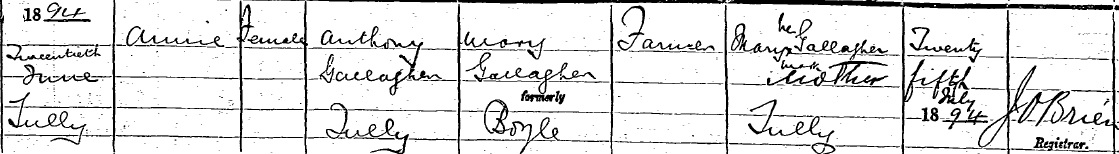 1894
Twentieth
June
Tully
Annie
Female
Anthony
Gallagher
Tully
Mary
Gallagher
formerly
Boyle
Farmer
her
Mary X Gallagher
mark
Mother
Tully
Twenty
fifth
July
1894
J O'Brien
Registrar.